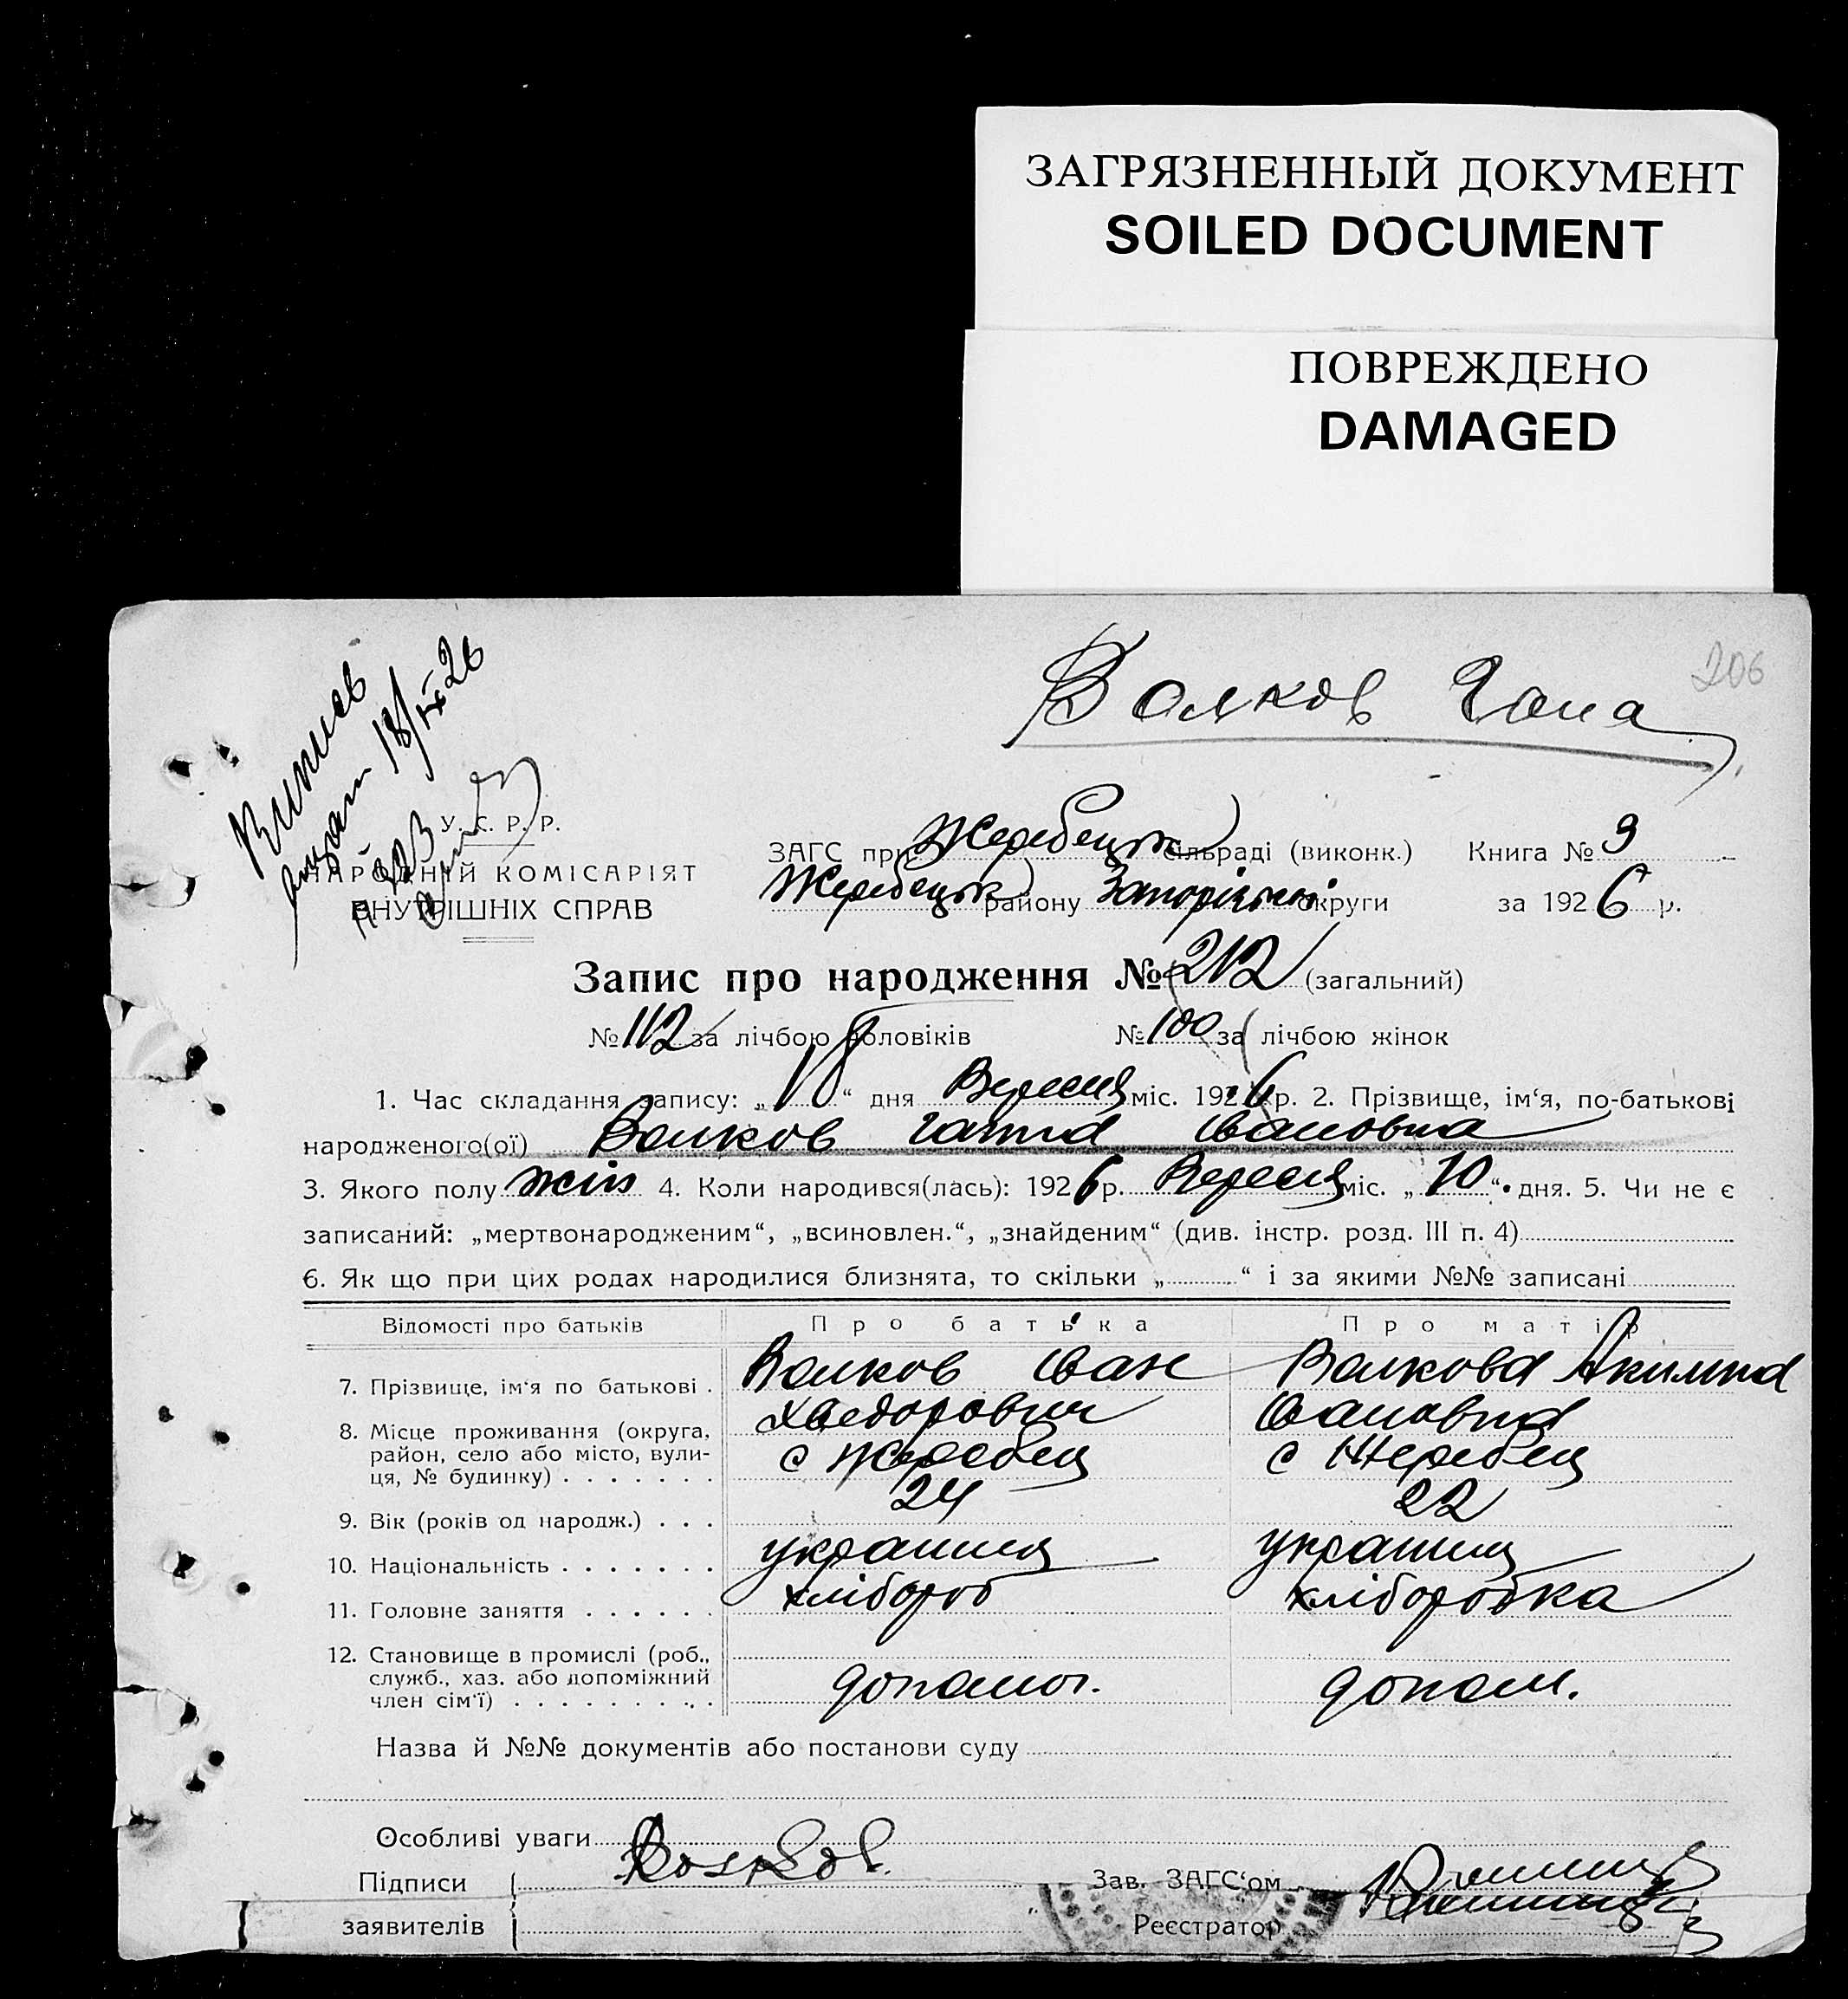 ЗАГРЯЗНЕННЫЙ ДОКУМЕНТ
SOILED DOCUMENT
ПОВРЕЖДЕНО
DAMAGED
206
Волков Гана
18/IX 26
У. С. Р. Р.
НАРОДНІЙ КОМІСАРІЯТ
ВНУТРІШНІХ СПРАВ
ЗАГС при Жеребецьк сільраді (виконк.) Книга № 9
Жеребецьк району Запорізької округи за 1926 р.
Запис про народження № 212 (загальний)
№ 112 за лічбою чоловіків № 100 за лічбою жінок
1. Час складання запису: „18“ дня Вересня міс. 1926 р. 2. Прізвище, ім‘я, по-батькові
народженого(ої) Волков Ганна Івановна
3. Якого полу жін 4. Коли народився(лась): 1926 р. Вересня міс. „10“ дня. 5. Чи не є
записаний: „мертвонародженим“, „всиновлен.“, „знайденим“ (див. інстр. розд. III п. 4)
6. Як що при цих родах народилися близнята, то скільки „ “ і за якими №№ записані
Відомості про батьків Про батька Про матір
7. Прізвище, ім‘я по батькові . Волков Іван Волкова Акилина
Хведорович Івановна
8. Місце проживання (округа, район, село або місто, вули-
ця, № будинку) . . . . . . . с Жеребец с Жеребец
9. Вік (років од народж.) . . . 24 22
10. Національність . . . . . . . украинец украинц
11. Головне заняття . . . . . . хлібороб хліборобка
12. Становище в промислі (роб.,
служб., хаз. або допоміжний
член сім‘ї) . . . . . . . . . . допомог. допом.
Назва й №№ документів або постанови суду
Особливі уваги
Підписи Волков Зав. ЗАГС‘ом
заявителів Реєстратор